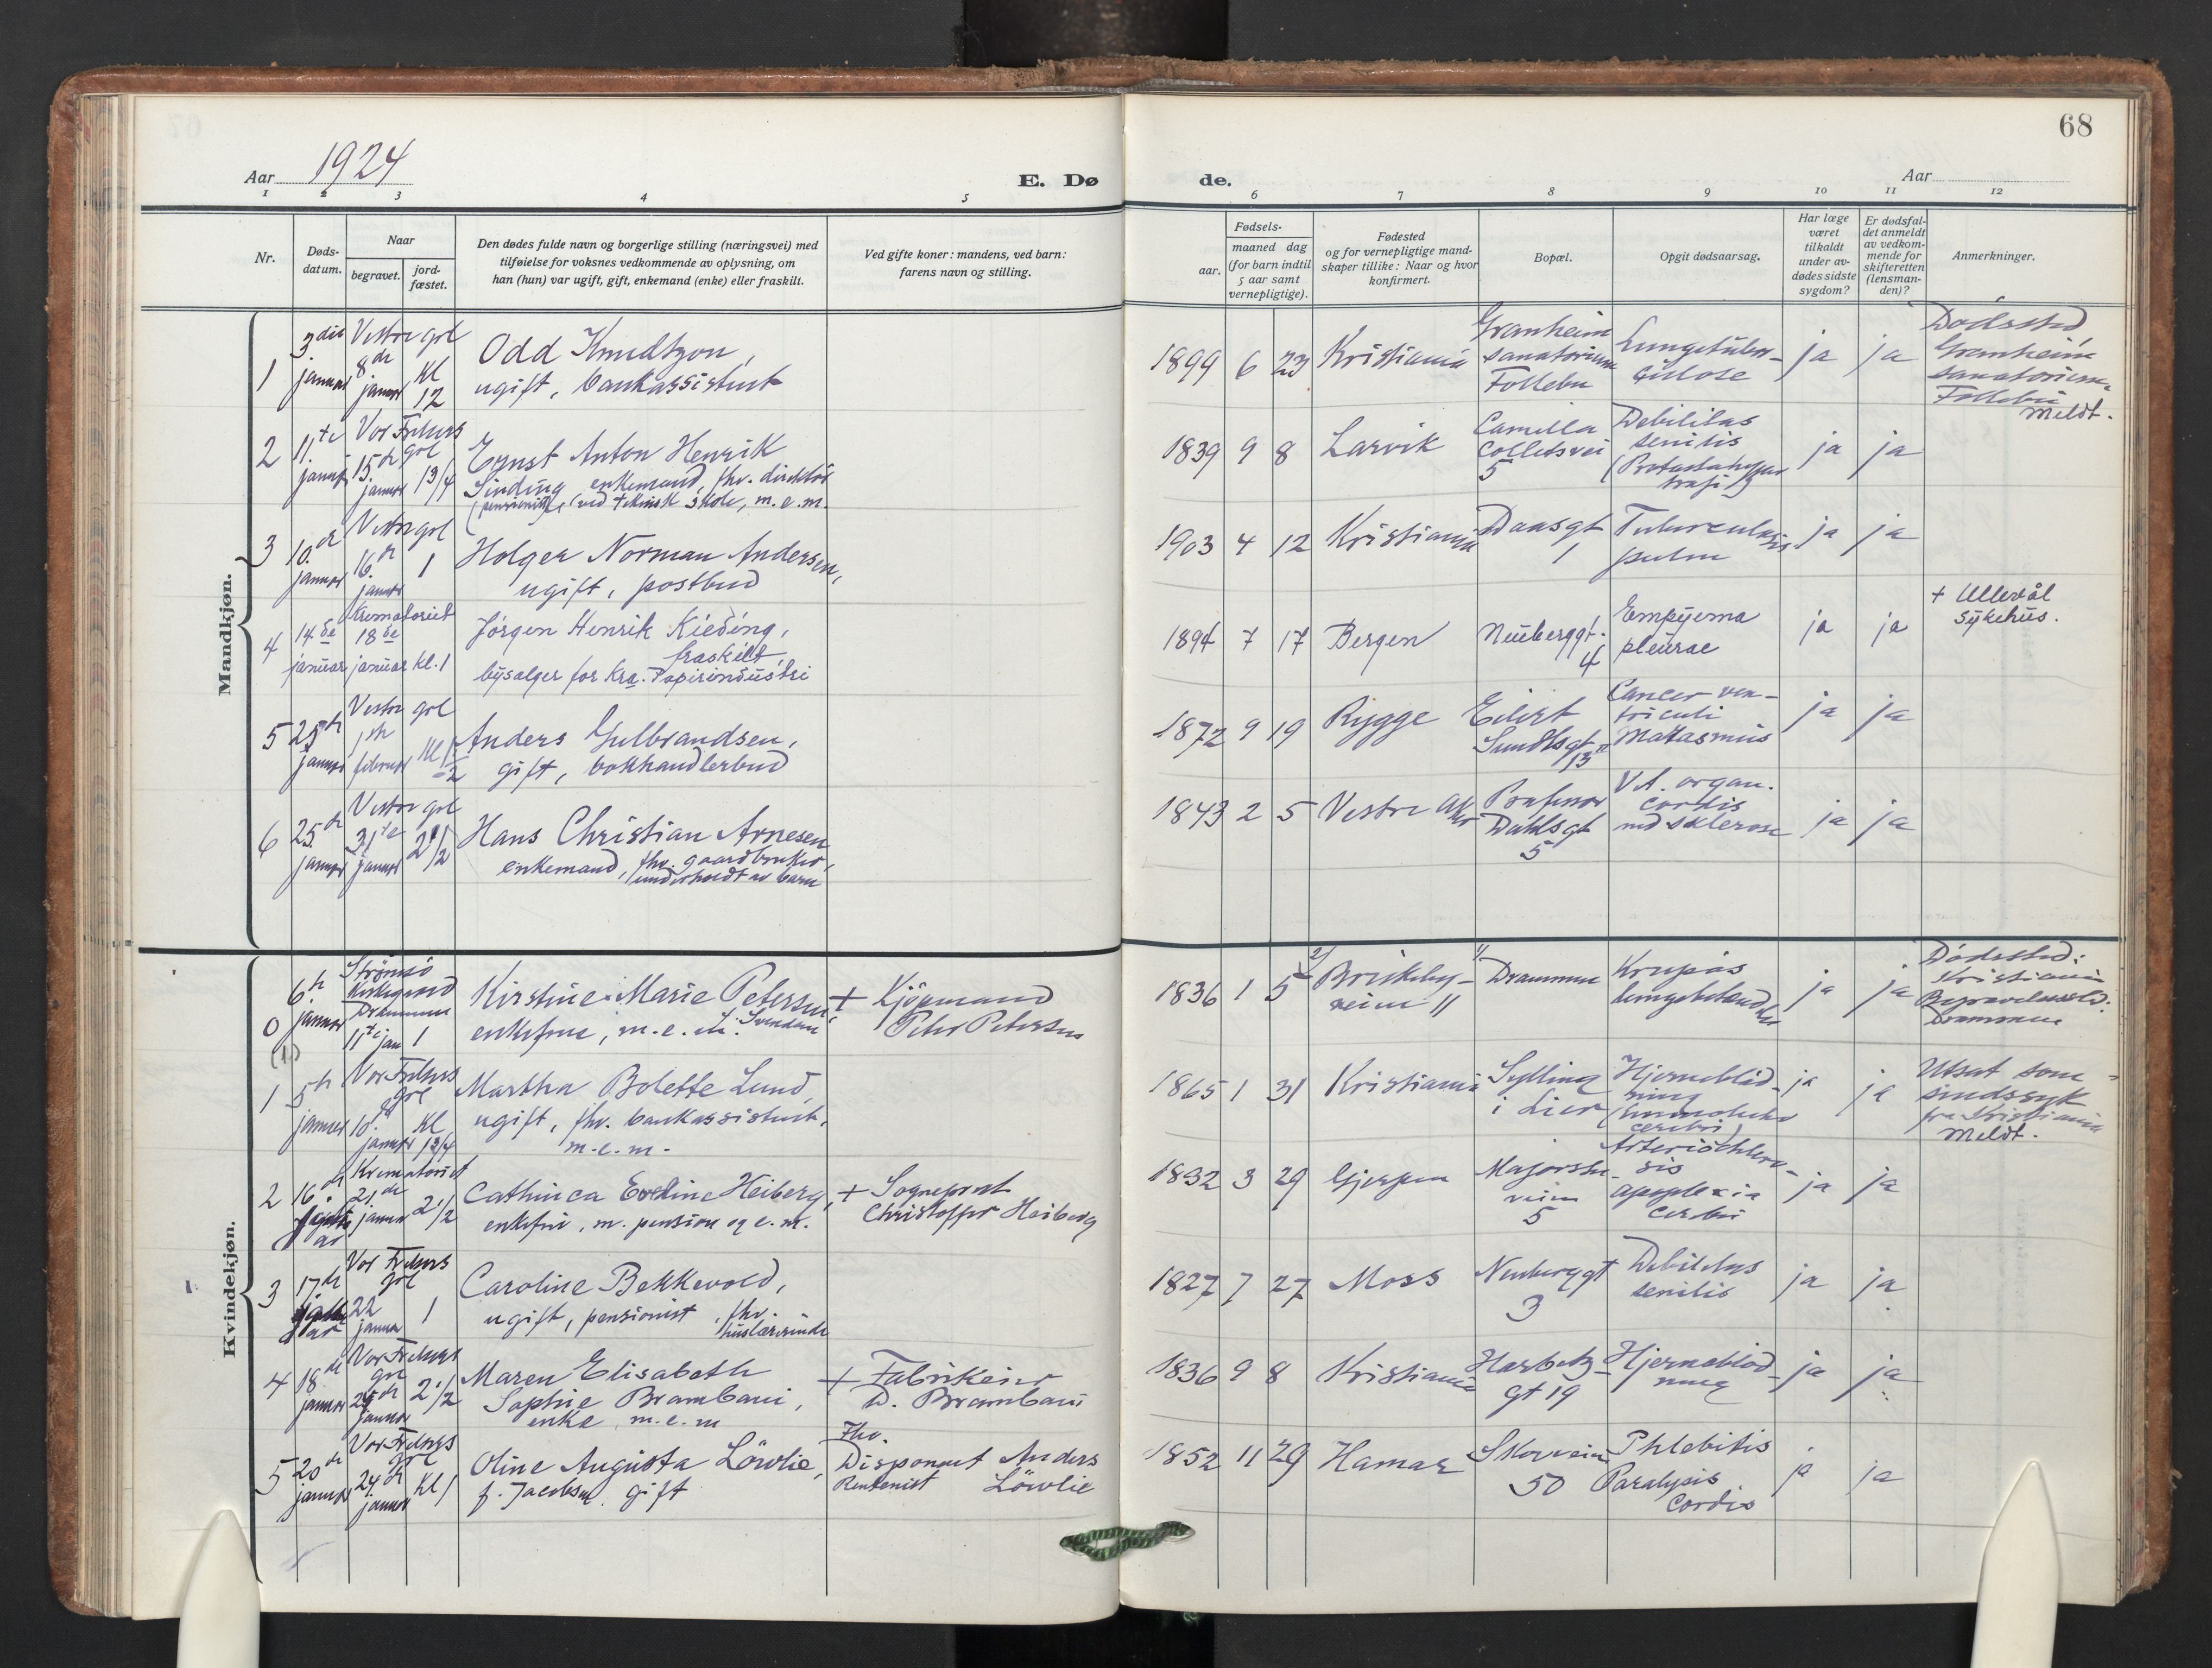 68
Aar 1924
E. Dø
de.
Aar
1 2 3 4 5
6 7 8 9 10 11 12
Nr.
Døds-
datum.
Naar
begravet.
jord-
fæstet.
Den dødes fulde navn og borgerlige stilling (næringsvei) med
tilføielse for voksnes vedkommende av oplysning, om
han (hun) var ugift, gift, enkemand (enke) eller fraskilt.
Ved gifte koner: mandens, ved barn:
farens navn og stilling.
Fødsels-
aar.
maaned dag
(for barn indtil
5 aar samt
vernepligtige).
Fødested
og for vernepligtige mand-
skaper tillike: Naar og hvor
konfirmert.
Bopæl.
Opgit dødsaarsag.
Har læge
været
tilkaldt
under av-
dødes sidste
sygdom?
Er dødsfal-
det anmeldt
av vedkom-
mende for
skifteretten
(lensman-
den)?
Anmerkninger.
Mandkjøn.
1
3die
januar
Vestre grl
8de
januar
Kl
12
Odd Knudtzon,
ugift, bankassistent
1899 6 23 Kristiania
Granheim
sanatorium
Follebu
Lungetuber-
culose
ja ja
Dødssted
Granheim
sanatorium,
Follebu
Meldt.
2
11te
januar
Vor Frelsers
grl
15de
januar
1 3/4
Ernst Anton Henrik
Sinding, enkemand, fhv. direktör
(pensionist), (ved teknisk skole, m. e. m.
1839 9 8 Larvik
Camilla
Colletsvei
5
Debilitas
senilis
ja ja
3
10de
januar
Vestre grl
16de
januar
1
Holger Norman Andersen,
ugift, postbud
1903 4 12 Kristiania
Daasgt
1
Tuberculosis
pulm
ja ja
4
14de
januar
Krematoriet
18de
januar kl. 1
Jørgen Henrik Kieding,
fraskilt
bysælger for Kra. Papirindustri
1894 7 17 Bergen
Neuberggt.
4
Empyema
pleurae
ja ja
+ Ullevål
sykehus.
5
25de
januar
Vestre grl
1ste
februar
Kl 1 1/2
Anders Gulbrandsen,
gift, bokhandlerbud
1872 9 19 Rygge
Eilert
Sundtsgt
13 II
Cancer ven-
triculi
Marasmus
ja ja
6
25de
januar
Vestre grl
31te
januar
2 1/2
Hans Christian Arnesen
enkemand, fhv. gaardbruker,
underholdt av barn
1843 2 5 Vestre Aker
Professor
Dahlsgt
5
V. A. organ.
cordis
med sklerose
ja ja
Kvindekjøn.
0
(1)
6te
januar
Strømsø
Kirkegaard
Drammen
11te jan 1
Kirstine Marie Petersen,
enkefrue, m. e. m. f. Svendsen
+ Kjøpmand
Peter Petersen
1836 1 5
Drammen
Krupøs
lungebetændelse
ja ja
Dødssted:
Kristiania
Begravelsessted:
Drammen
1
5te
januar
Vor Frelsers
grl
10.
januar
Kl
1 3/4
Martha Bolette Lund,
ugift, fhv. bankassistent,
m. e. m.
1865 1 31 Kristiania
Sylling
i Lier
Hjerneblød-
ning
cerebri)
ja ja
Utsat som
sindssyk
fra Kristiania
Meldt.
2
16de
januar
Krematoriet
21de
januar
2 1/2
Cathinca Eveline Heiberg,
enkefru, m. pension og e. m.
+ Sogneprest
Christopher Heiberg
1832 3 29 Gjerpen
Majorstu-
veien
5
Arteriosklero-
sis
apoplexia
cerebri
ja ja
3
17de
januar
Vor Frelsers
grl
22
januar
1
Caroline Bekkevold,
ugift, pensionist, fhv.
huslærerinde
1827 7 27 Moss
Neuberggt
3
Debilitas
senilis
ja ja
4
18de
januar
Vor Frelsers
grl
24de
januar
2 1/2
Maren Elisabeth
Sophie Brambani,
enke m. e. m
+ Fabrikeier
D. Brambani
1836 9 8 Kristiania
Harbitz-
gt 19
Hjerneblød-
ning
ja ja
5
20de
januar
Vor Frelsers
grl
24de
januar
Kl 1
Oline Augusta Løvlie,
f. Jacobsen. gift
Fhv.
Disponent Anders
Rentenist Løvlie
1852 11 29 Hamar
Skovveien
50
Phlebitis
Paralysis
Cordis
ja ja